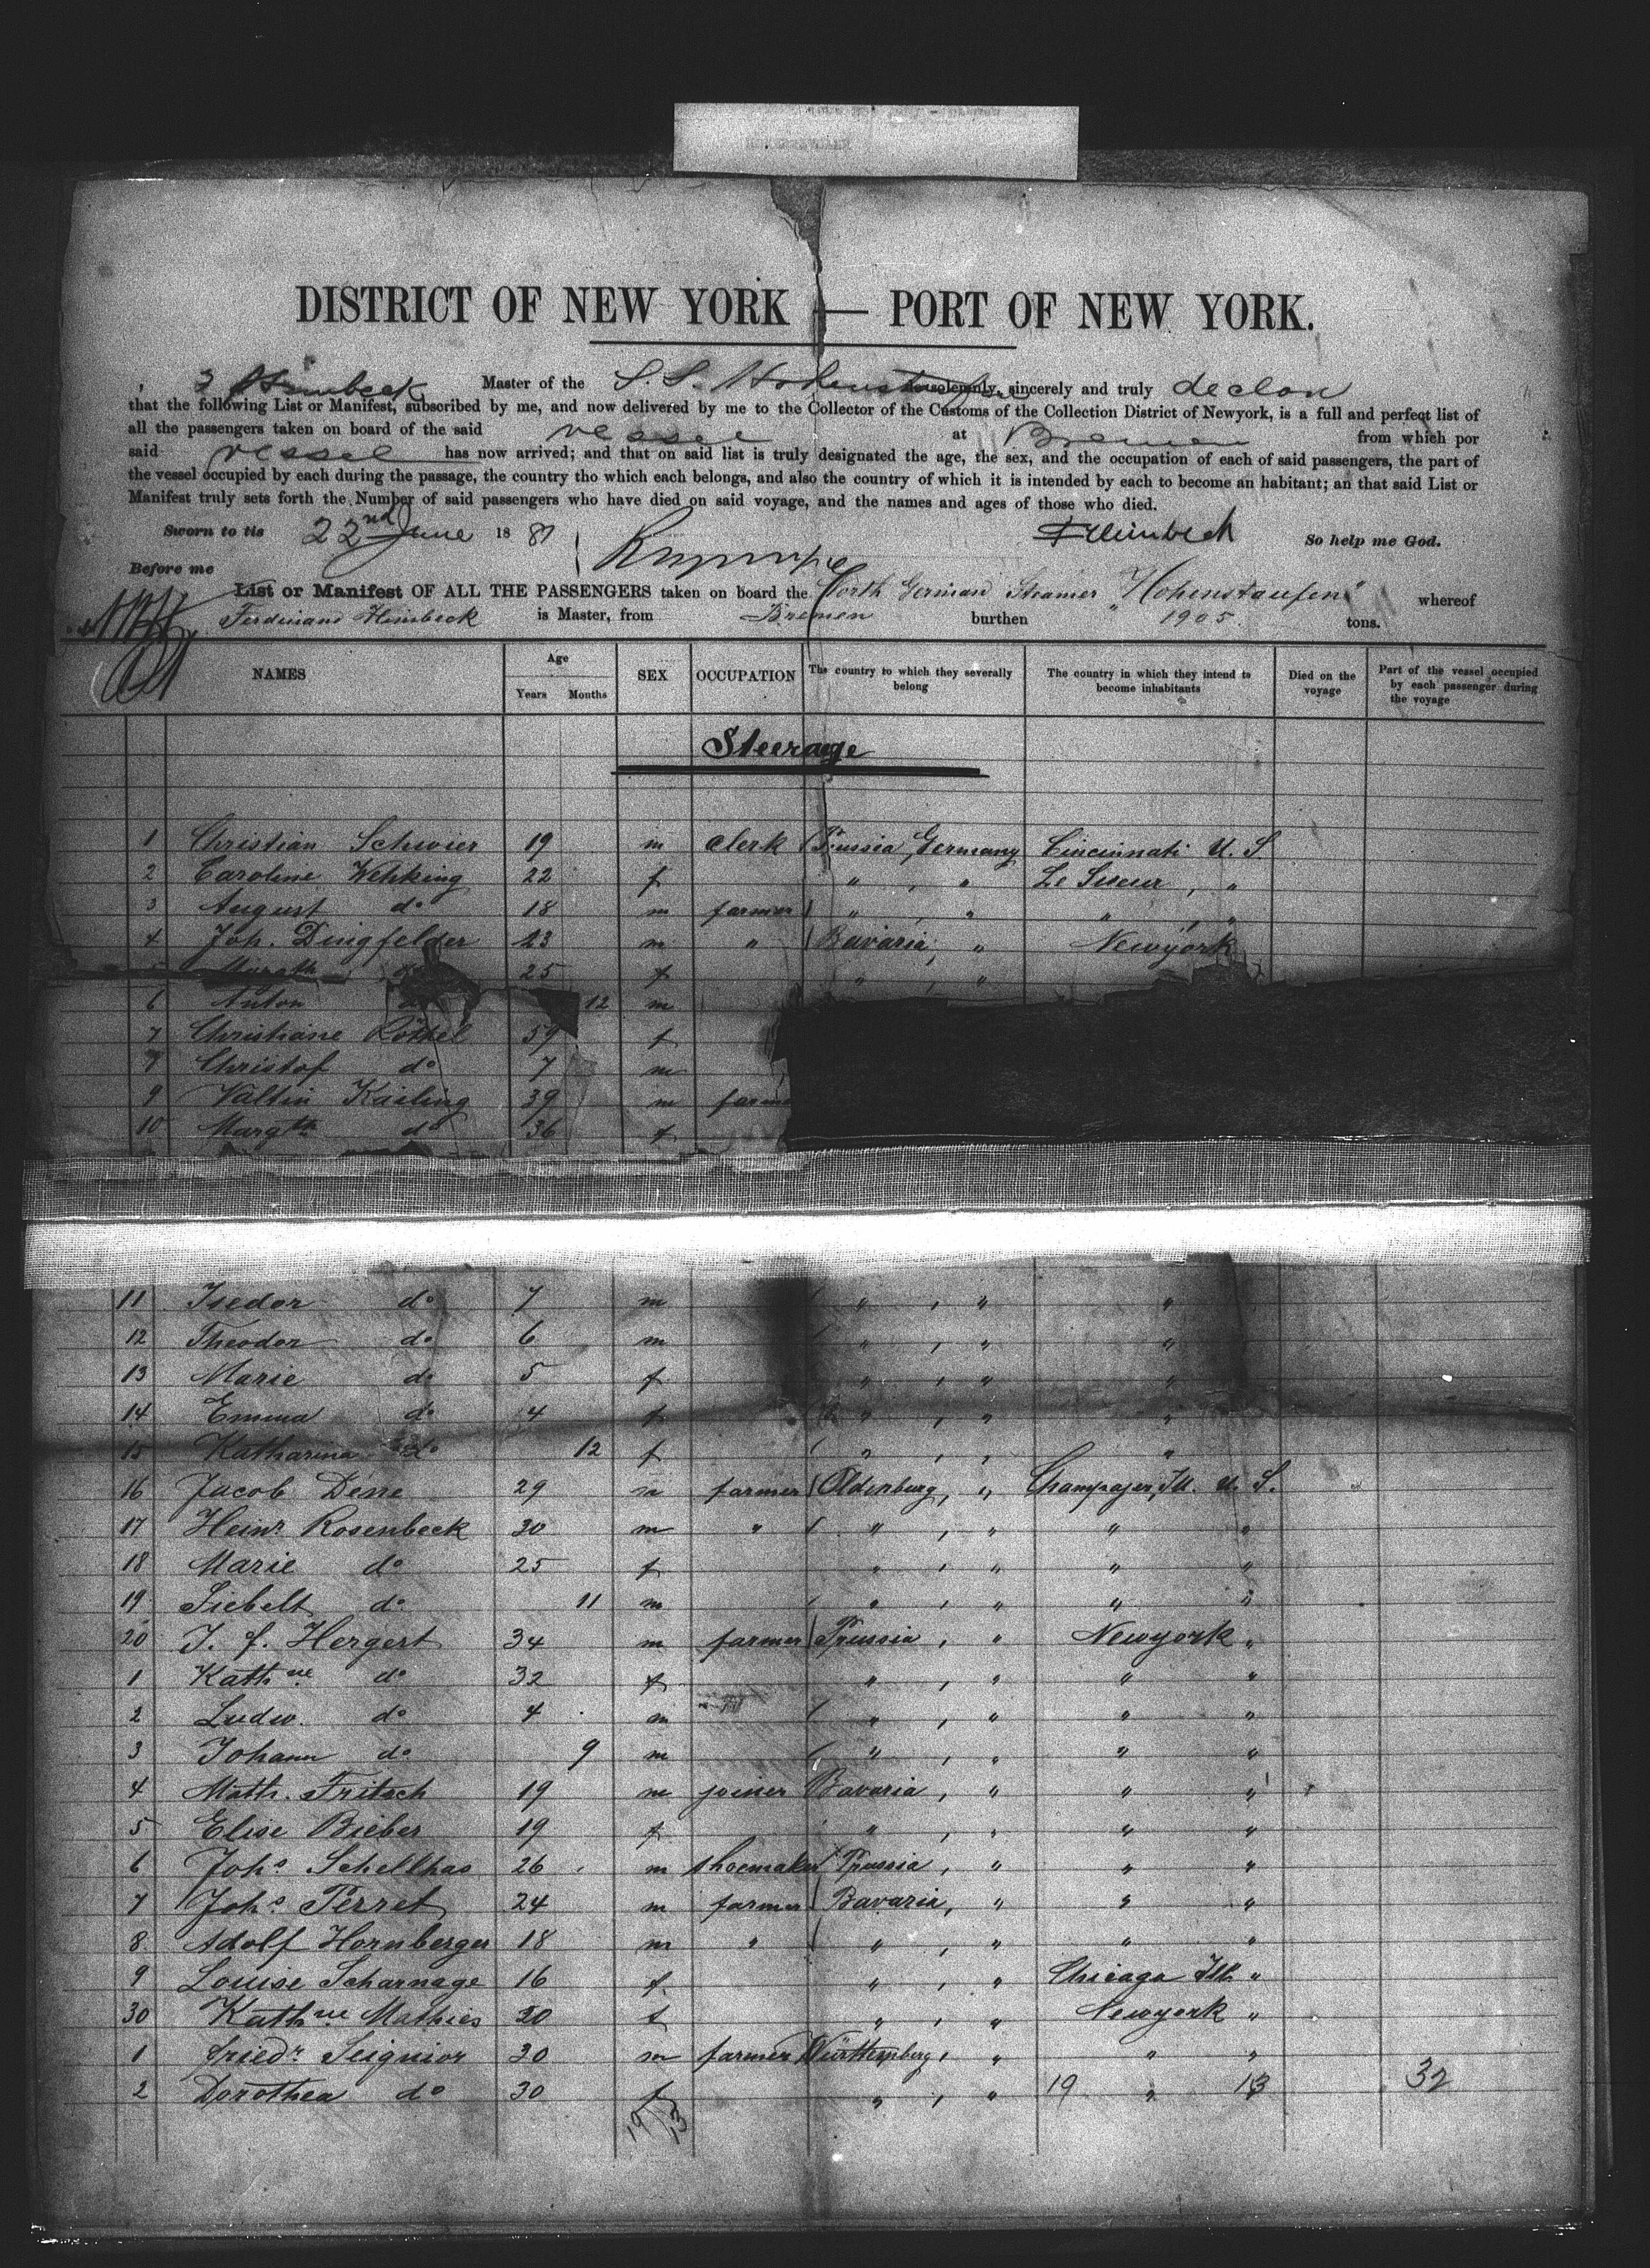 DISTRICT OF NEW YORK — PORT OF NEW YORK.
Master of the S. S. Hohenstaufen do solemnly, sincerely and truly declare
that the following List or Manifest, subscribed by me, and now delivered by me to the Collector of the Customs of the Collection District of Newyork, is a full and perfect list of
all the passengers taken on board of the said vessel at Bremen from which por
said vessel has now arrived; and that on said list is truly designated the age, the sex, and the occupation of each of said passengers, the part of
the vessel occupied by each during the passage, the country tho which each belongs, and also the country of which it is intended by each to become an habitant; an that said List or
Manifest truly sets forth the Number of said passengers who have died on said voyage, and the names and ages of those who died.
Sworn to tis 22nd June 1881 FHeimbeck So help me God.
Before me
List or Manifest OF ALL THE PASSENGERS taken on board the North German Steamer "Hohenstaufen" whereof
Ferdinand Heimbeck is Master, from Bremen burthen 1905. tons.
NAMES Age Years Months SEX OCCUPATION The country to which they severally belong The country in which they intend to become inhabitants Died on the voyage Part of the vessel occupied by each passenger during the voyage
Steerage
1 Christian Schwier 19 m clerk Prussia, Germany Cincinnati U. S
2 Caroline Wehking 22 f " , " Le Sueur , "
3 August do 18 m farmer " , " " , "
4 Joh. Dingfelder 23 m " Bavaria, " Newyork
5 do 25 f " , "
6 Anton do 12 m
7 Christiane Röthel 59 f
8 Christof do 7 m
9 Valtin Kailing 39 m farme
10 Margth do 36 f
11 Isedor do 7 m " , " "
12 Theodor do 6 m " , " "
13 Marie do 5 f " , " "
14 Emma do 4 f " , " "
15 Katharina do 12 f " , " "
16 Jacob Dene 29 m farmer Oldenburg, " Ill. U. S.
17 Heinr Rosenbeck 30 m " " , " " "
18 Marie do 25 f " , " " "
19 Siebelt do 11 m " , " " "
20 J. f. Hergert 34 m farmer Prussia, " Newyork "
1 Kathne do 32 f " , " " "
2 Ludw. do 4 m " , " " "
3 Johann do 9 m " , " " "
4 Math. Fritsch 19 m joiner Bavaria, " " "
5 Elise Bieber 19 f " , " " "
6 Johs Schellhas 26 m shoemaker Prussia, " " "
7 Johs Perret 24 m farmer Bavaria, " " "
8 Adolf Hornberger 18 m " " , " " "
9 Louise Scharnage 16 f " , " Chicago Ill. "
30 Kathne Mathies 20 f " , " Newyork "
1 Friedr Seignior 30 m farmer Württemberg, " " "
2 Dorothea do 30 f " , " 19 " 13 32
19 13